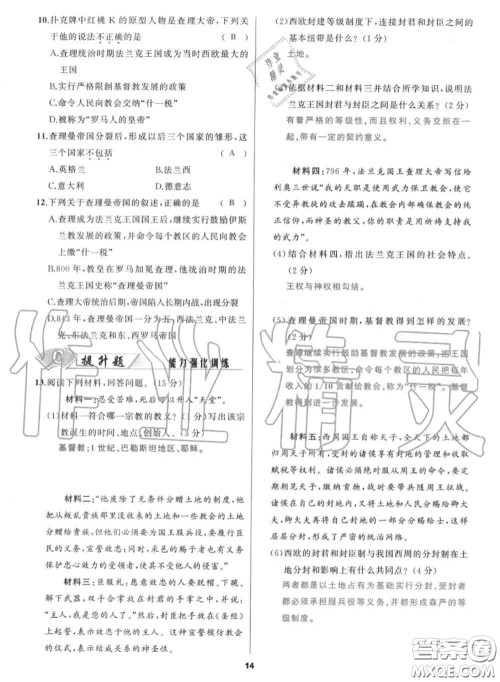 10.扑克牌中红桃 K 的原型人物是查理大帝,下列关
于他的说法不正确的是 ( B )
A.查理统治时期的法兰克王国成为当时西欧最大的
王国
B.实行严格限制基督教发展的政策
C.命令人民向教会交纳“什一税”
D.被称为“罗马人的皇帝”
11.查理曼帝国分裂后,形成以后三个国家的雏形,这
三个国家不包括 ( A )
A.英格兰 B.法兰西
C.意大利 D.德意志
12.下列关于查理曼帝国的叙述,正确的是 ( B )
A.成为法兰克王国国王后,继续实行鼓励伊斯
兰教发展的政策,并命令每个教区的人民向教会
上缴“什一税”
B.800 年,教皇在罗马加冕查理,他统治时期的法
兰克王国成为
C.查理大帝统治后期,帝国陷入长期战乱,导致分裂
D.843 年,查理曼帝国一分为五,
北、东法兰克和东、西罗马帝国
提升题 能力强化训练
13.阅读下列材料,回答问题。(15 分)
材料一:忍受苦难,死后可以升入“天堂”。
(1)材料一符合哪一宗教的教义?写出该宗
教诞生的时间、地点、创始人。(3 分)
基督教;1 世纪、巴勒斯坦地区、耶稣。
材料二:“他废除了无条件分赠土地的制度,他
以从叛乱贵族那里没收来的和国家掌管的土地分封
给贵族,但他们必须要为国王服兵役,并且要履行臣
民的义务,宣誓效忠;同时,采邑的赐子者也有义务
保护受封者,使其不受他人的侵害。”
材料三:臣服礼,愿意效忠的人要脱帽、下跪、
解下武器,双手合掌放在封君的手掌之中,并说:
“主人,我是您的人了。”然后,封臣手按放在《圣经》
上起誓,表示效忠于他的主人。这种宣誓模仿教会
的仪式,表示效忠关系的神圣性。
(2)西欧封建等级制度下,连接封君和封臣之间
的纽带是什么?(1 分)
土地。
(3)依据材料二和材料三并结合所学知识,说明法
兰克王国封君与封臣之间是什么关系?(2 分)
有着严格的等级性,而且权利、义务交织在一
起,带有一定的契约意义。
材料四:796 年,法兰克国王查理大帝写信给
利奥三世说“我的天职是使用武力保卫教会,使它
不受异教徒的攻击蹂躏,在教会内部确保教会的纯
正信仰,而神圣的教父,你的职责是用祈祷支持我
的武力。”
(4)结合材料四,指出法兰克王国的社会特点。
(2 分)
王权与神权相勾结。
(5)查理曼帝国时期,基督教得到怎样的发展?
(3 分)
查理继续实行鼓励基督教发展的政策,把王国
划分为许多教区,命令每个教区的人民把每年
收入的 1/10 贡献给教会,称为“什一税”。基督教
得到进一步发展。
材料五:西周国王自称天子,全天下的土地都
归周天子所有,诸侯在自己的封地内享有世袭统治
权,享有封地的管理和收取
赋税等权利。诸侯必须绝对服从周王的命令,要定
期朝见天子,缴纳贡赋,战时要带兵随同周王征战。
诸侯在自己的封地内,又将土地和人民分赐给卿大
夫,卿大夫再把土地和人民的一部分分赐给士,从
而形成了严密的统治网络。
(6)西欧的封君和封臣制与我国西周的分封制在土
地分封和影响上有什么共同点?(4 分)
两者都是以土地占有为基础实行分封,受封者
都必须承担服兵役等义务,并都形成森严的等
级制度。
14
作业精灵
答案圈
MXQE.COM